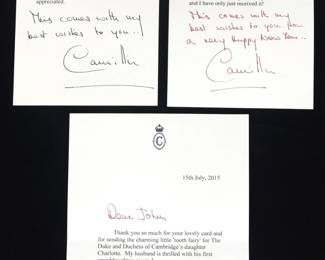 appreciated.
This comes with my
best wishes to you..
Camilla
and I have only just received it!
This comes with my
best wishes to you for
a very Happy New Year..
Camilla
C
15th July, 2015
Dear John
Thank you so much for your lovely card and
for sending the charming little 'tooth fairy' for The
Duke and Duchess of Cambridge's daughter
Charlotte. My husband is thrilled with his first